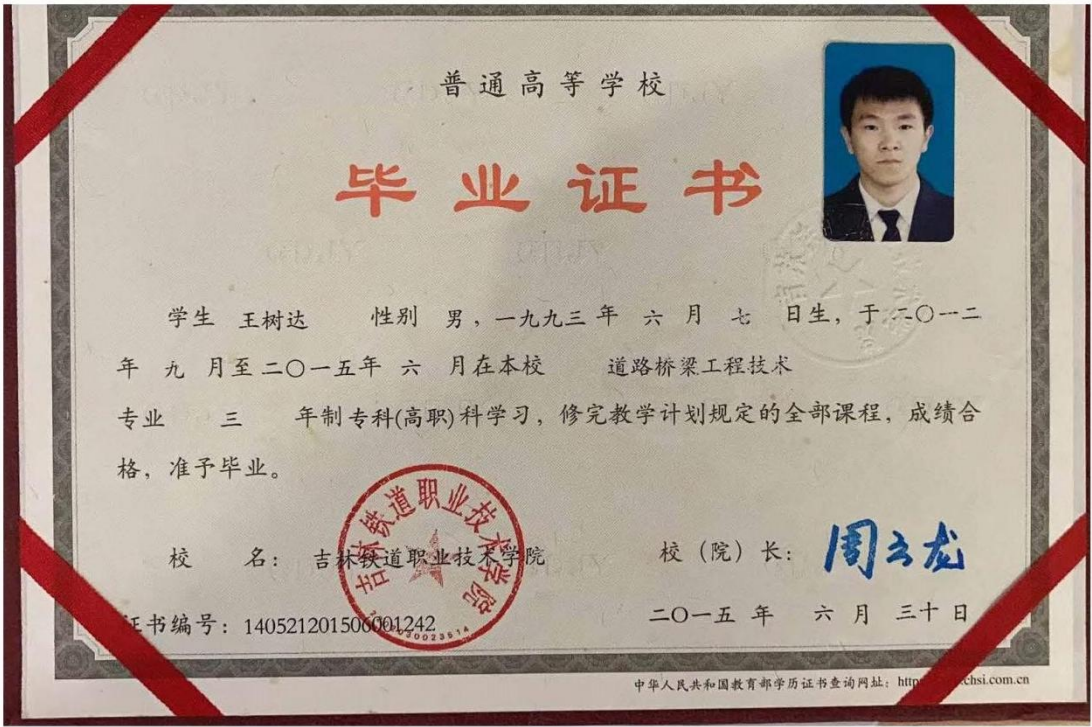 普通高等学校
毕业证书
学生 王树达 性别 男，一九九三 年 六 月 七 日生，于二〇一二
年 九 月至二〇一五年 六 月在本校 道路桥梁工程技术
专业 三 年制专科(高职)科学习，修完教学计划规定的全部课程，成绩合
格，准予毕业。
校 名： 吉林铁道职业技术学院
校（院）长： 周云龙
吉林铁道职业技术学院
证书编号：140521201506001242
二〇一五 年 六 月 三十 日
中华人民共和国教育部学历证书查询网址：http chsi.com.cn